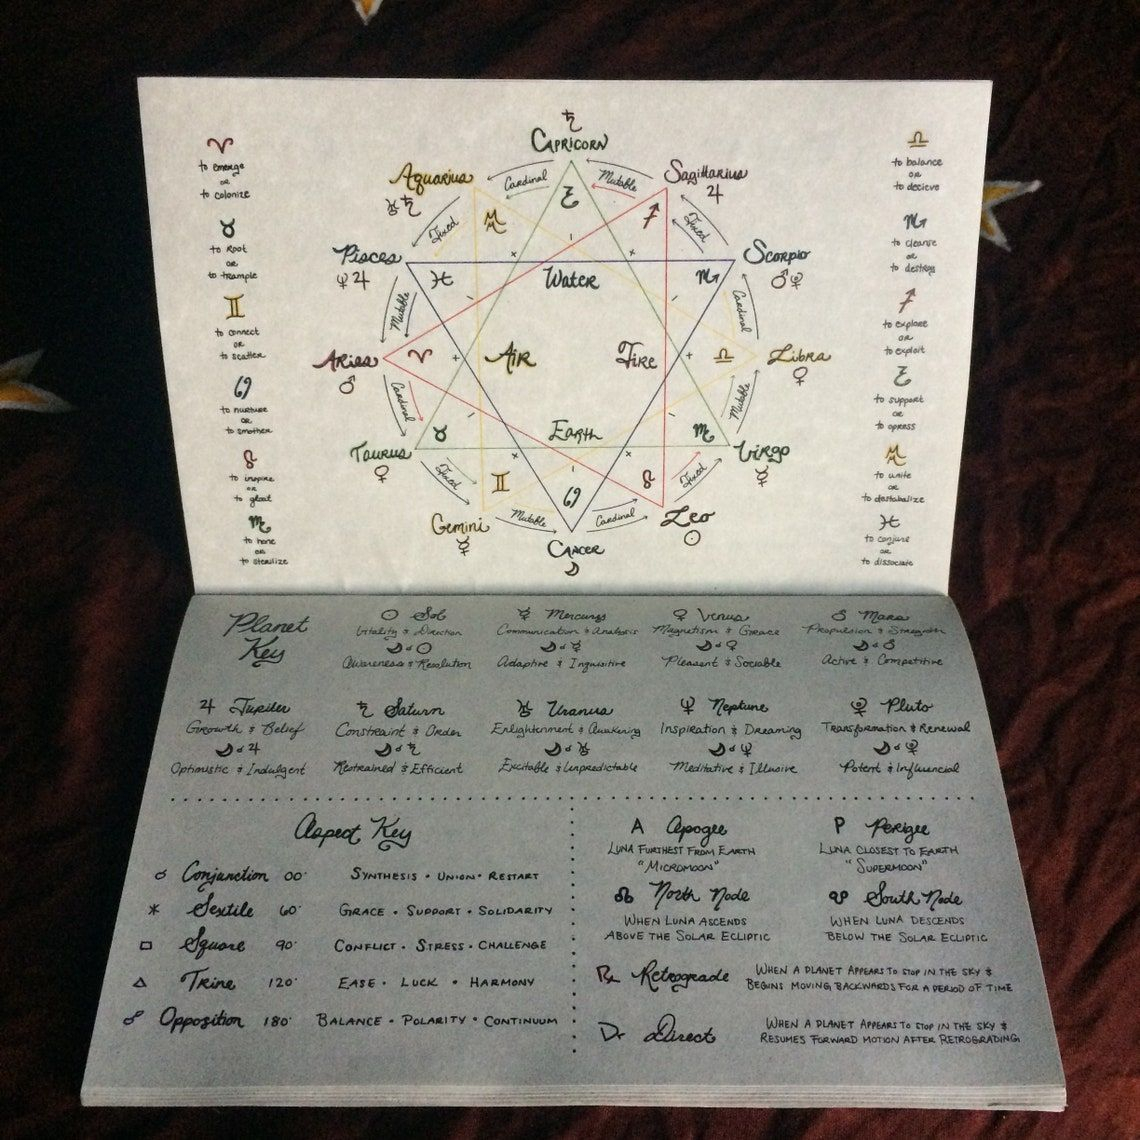 ♈
to emerge
OR
to colonize
♉
to Root
OR
to trample
♊
to connect
OR
to scatter
♋
to nurture
OR
to smother
♌
to inspire
OR
to gloat
♍
to hone
OR
to sterilize
♄
Capricorn
Aquarius
♅ ♄
Sagittarius
♃
Pisces
♆ ♃
Scorpio
♂ ♇
Aries
♂
Libra
♀
Taurus
♀
Virgo
☿
Gemini
☿
Leo
☉
Cancer
☽
Cardinal
Mutable
Fixed
Fixed
Mutable
Cardinal
Cardinal
Mutable
Fixed
Fixed
Mutable
Cardinal
Water
Air
Fire
Earth
♎
to balance
OR
to decieve
♏
to cleanse
OR
to destroy
♐
to explore
OR
to exploit
♑
to support
OR
to opress
♒
to unite
OR
to destabalize
♓
to conjure
OR
to dissociate
Planet
Key
☉ Sol
Vitality & Direction
☽ ☌ ☉
Awareness & Resolution
☿ Mercury
Communication & Analysis
☽ ☌ ☿
Adaptive & Inquisitive
♀ Venus
Magnetism & Grace
☽ ☌ ♀
Pleasent & Sociable
♂ Mars
Propulsion & Strength
☽ ☌ ♂
Active & Competitive
♃ Jupiter
Growth & Belief
☽ ☌ ♃
Optimistic & Indulgent
♄ Saturn
Constraint & Order
☽ ☌ ♄
Restrained & Efficient
♅ Uranus
Enlightenment & Awakening
☽ ☌ ♅
Excitable & Unpredictable
♆ Neptune
Inspiration & Dreaming
☽ ☌ ♆
Meditative & Illusive
♇ Pluto
Transformation & Renewal
☽ ☌ ♇
Potent & Influencial
Aspect Key
☌ Conjunction 00° SYNTHESIS • UNION • RESTART
⚹ Sextile 60° GRACE • SUPPORT • SOLIDARITY
□ Square 90° CONFLICT • STRESS • CHALLENGE
△ Trine 120° EASE • LUCK • HARMONY
☍ Opposition 180° BALANCE • POLARITY • CONTINUUM
A Apogee
LUNA FURTHEST FROM EARTH
"MICROMOON"
P Perigee
LUNA CLOSEST TO EARTH
"SUPERMOON"
☊ North Node
WHEN LUNA ASCENDS
ABOVE THE SOLAR ECLIPTIC
☋ South Node
WHEN LUNA DESCENDS
BELOW THE SOLAR ECLIPTIC
℞ Retrograde
WHEN A PLANET APPEARS TO STOP IN THE SKY &
BEGINS MOVING BACKWARDS FOR A PERIOD OF TIME
Dr Direct
WHEN A PLANET APPEARS TO STOP IN THE SKY &
RESUMES FORWARD MOTION AFTER RETROGRADING